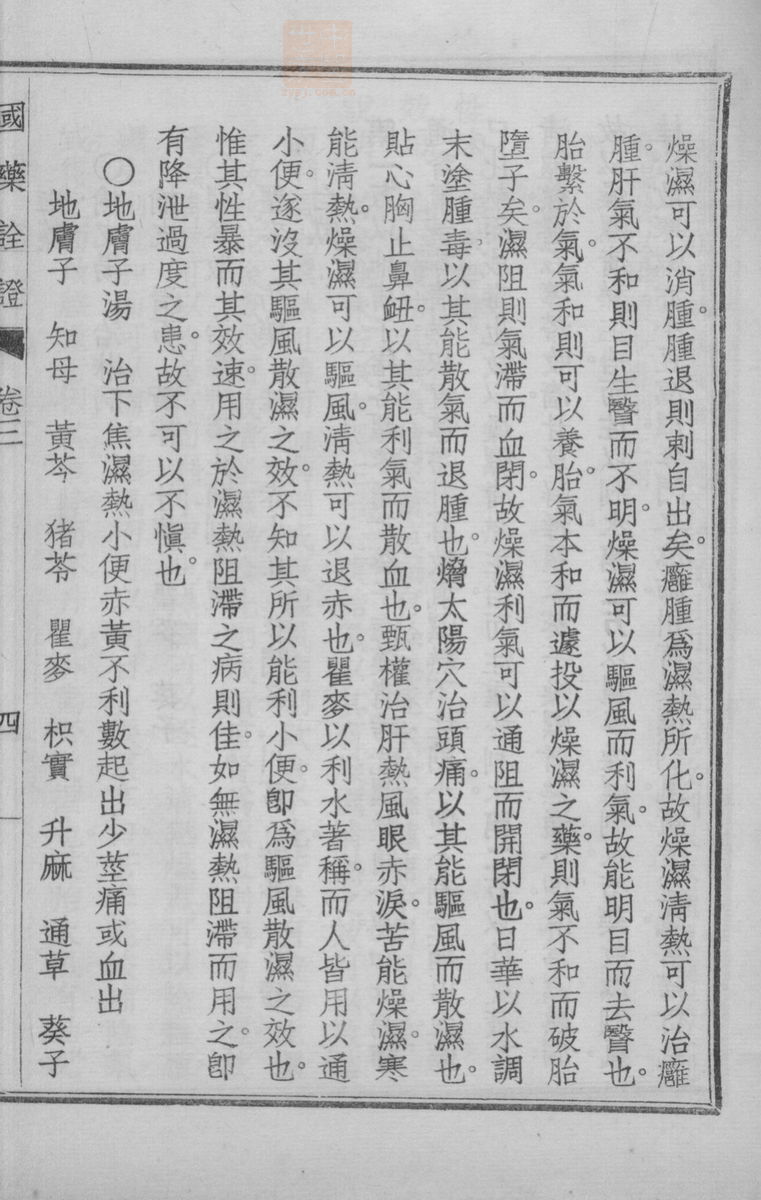 燥濕可以消腫。腫退則刺自出矣。癰腫爲濕熱所化。故燥濕淸熱可以治癰
腫。肝氣不和則目生瞖而不明。燥濕可以驅風而利氣。故能明目而去瞖也。
胎繫於氣。氣和則可以養胎。氣本和而遽投以燥濕之藥。則氣不和而破胎
墮子矣。濕阻則氣滯而血閉。故燥濕利氣可以通阻而開閉也。日華以水調
末塗腫毒。以其能散氣而退腫也。㷛太陽穴治頭痛。以其能驅風而散濕也。
貼心胸止鼻衄。以其能利氣而散血也。甄權治肝熱風眼赤淚。苦能燥濕。寒
能淸熱。燥濕可以驅風。淸熱可以退赤也。瞿麥以利水著稱。而人皆用以通
小便。遂沒其驅風散濕之效。不知其所以能利小便。卽爲驅風散濕之效也。
惟其性暴而其效速。用之於濕熱阻滯之病則佳。如無濕熱阻滯而用之。卽
有降泄過度之患。故不可以不愼也。
〇地膚子湯　治下焦濕熱小便赤黃不利數起出少莖痛或血出
地膚子　知母　黃芩　猪苓　瞿麥　枳實　升麻　通草　葵子
國藥詮證　卷三　四